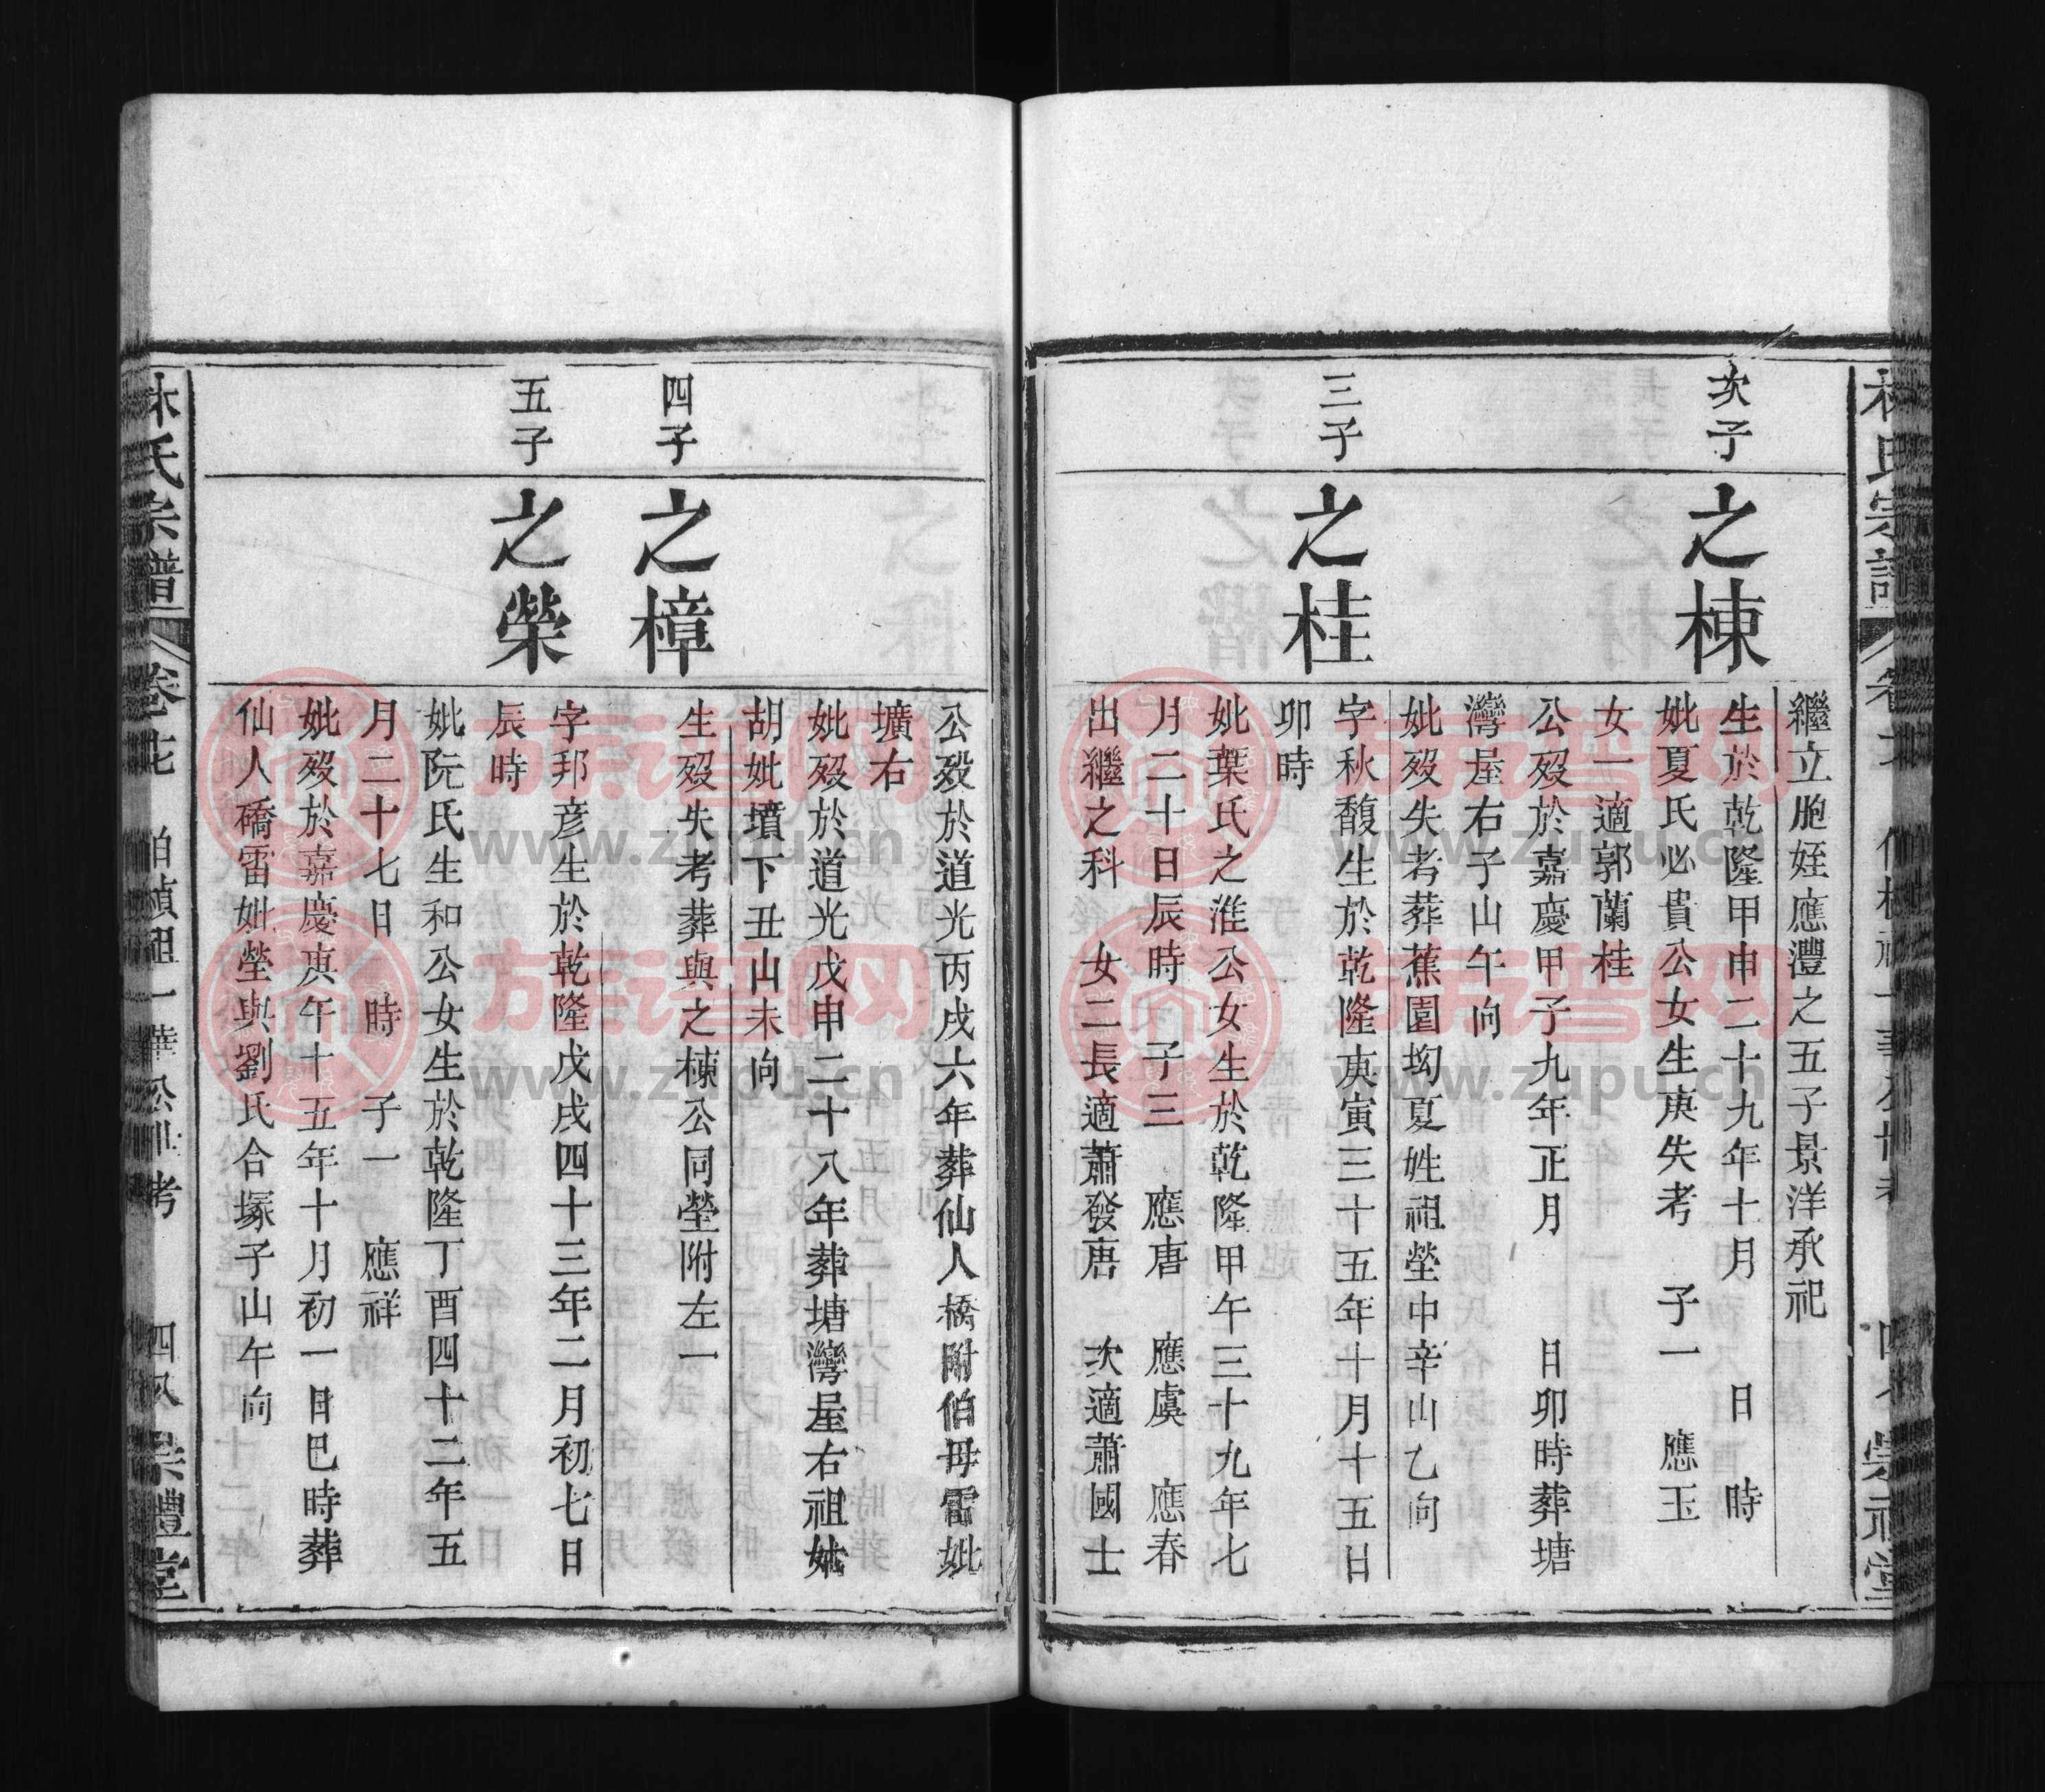 林氏宗譜
崇禮堂
繼立胞姪應灃之五子景洋承祀
次子
之棟
生於乾隆甲申二十九年十月 日 時
妣夏氏必貴公女生庚失考 子一 應玉
女一適郭蘭桂
公歿於嘉慶甲子九年正月 日卯時葬塘
灣屋右子山午向
妣歿失考葬蕉園坳夏姓祖塋中辛山乙向
三子
之桂
字秋馥生於乾隆庚寅三十五年十月十五日
卯時
妣葉氏之淮公女生於乾隆甲午三十九年七
月二十日辰時 子三 應唐 應虞 應春
出繼之科後 女二長適蕭發唐 次適蕭國士
公歿於道光丙戌六年葬仙人橋附伯母雷妣
壙右
妣歿於道光戊申二十八年葬塘灣屋右祖妣
胡妣墳下丑山未向
四子
之樟
生歿失考葬與之棟公同塋附左一
五子
之榮
字邦彦生於乾隆戊戌四十三年二月初七日
辰時
妣阮氏生和公女生於乾隆丁酉四十二年五
月二十七日 時 子一 應祥
妣歿於嘉慶庚午十五年十月初一日巳時葬
仙人礄雷妣塋與劉氏合塚子山午向
林氏宗譜
伯楨祖一華公世考
四八
崇禮堂
族谱网
www.zupu.cn
族谱网
www.zupu.cn
族谱网
www.zupu.cn
族谱网
www.zupu.cn